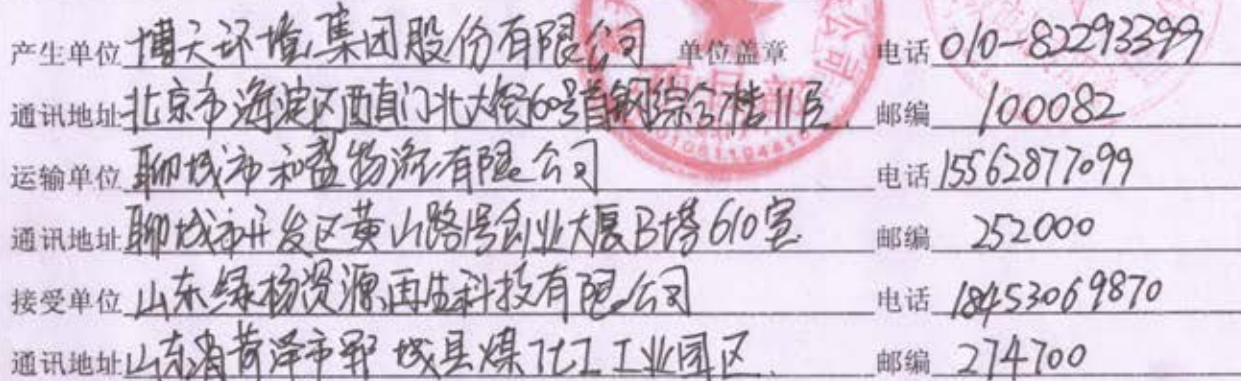 产生单位 博天环境集团股份有限公司 单位盖章 电话 010-82293399
通讯地址 北京市海淀区西直门北大街60号首钢综合楼11层 邮编 100082
运输单位 聊城市和盈物流有限公司 电话 15562877099
通讯地址 聊城市开发区黄山路号创业大厦B塔610室 邮编 252000
接受单位 山东绿杨资源再生科技有限公司 电话 18453069870
通讯地址 山东省菏泽市郓城县煤化工工业园区 邮编 274700